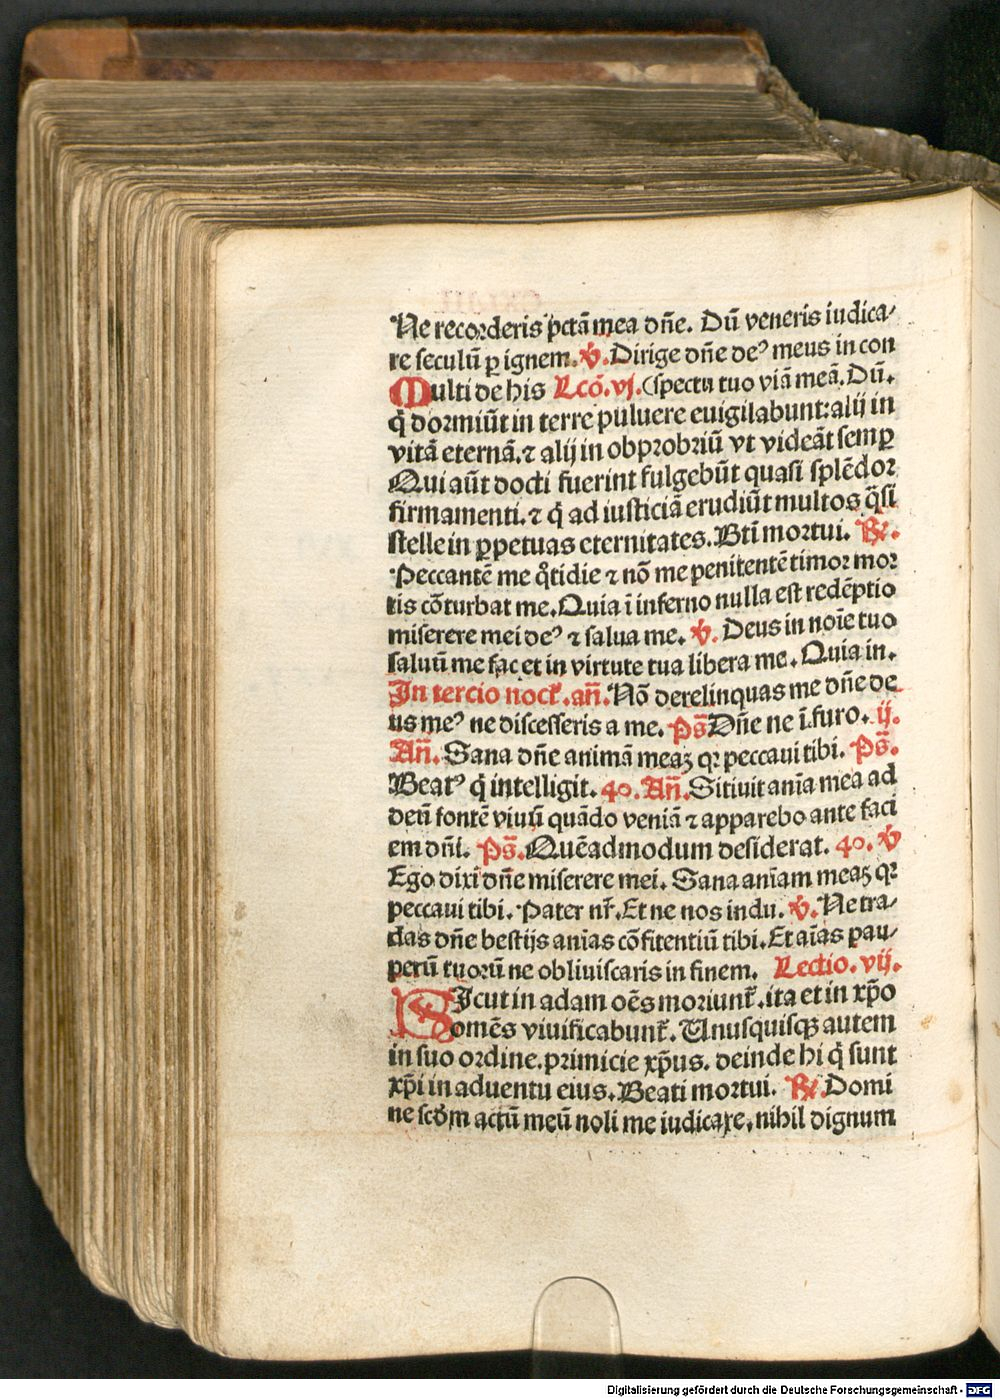 Ne recorderis pctā mea dñe. Dū veneris iudica⸗
re seculū ꝑ ignem. ℣. Dirige dñe deꝰ meus in con
Multi de his Lcō. vj. (spectu tuo viā meā. Dū.
q̇ dormiūt in terre puluere euigilabunt: alij in
vitā eternā. ⁊ alij in obprobriū vt videāt semꝑ
Qui aūt docti fuerint fulgebūt quasi splēdor
firmamenti. ⁊ q̇ ad iusticiā erudiūt multos q̄si
stelle in ꝑpetuas eternitates. Bti mortui. ℟.
Peccantē me qͦtidie ⁊ nō me penitentē timor mor
tis cōturbat me. Quia ī inferno nulla est redēptio
miserere mei deꝰ ⁊ salua me. ℣. Deus in noīe tuo
saluū me fac et in virtute tua libera me. Quia in.
In tercio noct̄. añ. Nō derelinquas me dñe de
us meꝰ ne discesseris a me. Ps̄ Dñe ne ī furo. ij.
Añ. Sana dñe animā meaꝫ qꝛ peccaui tibi. Ps̄.
Beatꝰ q̇ intelligit. 40. Añ. Sitiuit anīa mea ad
deū fontē viuū quādo veniā ⁊ apparebo ante faci
em dñi. Ps̄. Quēadmodum desiderat. 40. ℣
Ego dixi dñe miserere mei. Sana anīam meaꝫ qꝛ
peccaui tibi. Pater nr̄. Et ne nos indu. ℣. Ne tra⸗
das dñe bestijs anīas cōfitentiū tibi. Et aīas pau⸗
perū tuorū ne obliuiscaris in finem. Lectio. vij.
SIcut in adam oēs moriunt̄. ita et in xp̄o
omēs viuificabunt̄. Unusquisqꝫ autem
in suo ordine. primicie xp̄us. deinde hi q̇ sunt
xp̄i in aduentu eius. Beati mortui. ℟. Domi
ne scd̄m actū meū noli me iudicare, nihil dignum
Digitalisierung gefördert durch die Deutsche Forschungsgemeinschaft - DFG